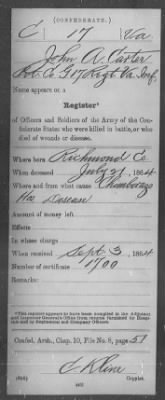 (CONFEDERATE.)
C 17 Va
John A. Carter
Co. G 17 Regt Va. Inf.
Name appears on a
Register*
of Officers and Soldiers of the Army of the Con-
federate States who were killed in battle, or who
died of wounds or disease.
Where born Richmond Co
When deceased July 21, 1864
Where and from what cause
Disease
Amount of money left
Effects
In whose charge
When received Sept 3, 1864
Number of certificate 1700
Remarks:
*This register appears to have been compiled in the Adjutant
and Inspector General's Office from returns furnished by Hospi-
tals and by Regimental and Company Officers.
Confed. Arch., Chap. 10, File No. 8, page 51
C. Kline
Copyist.